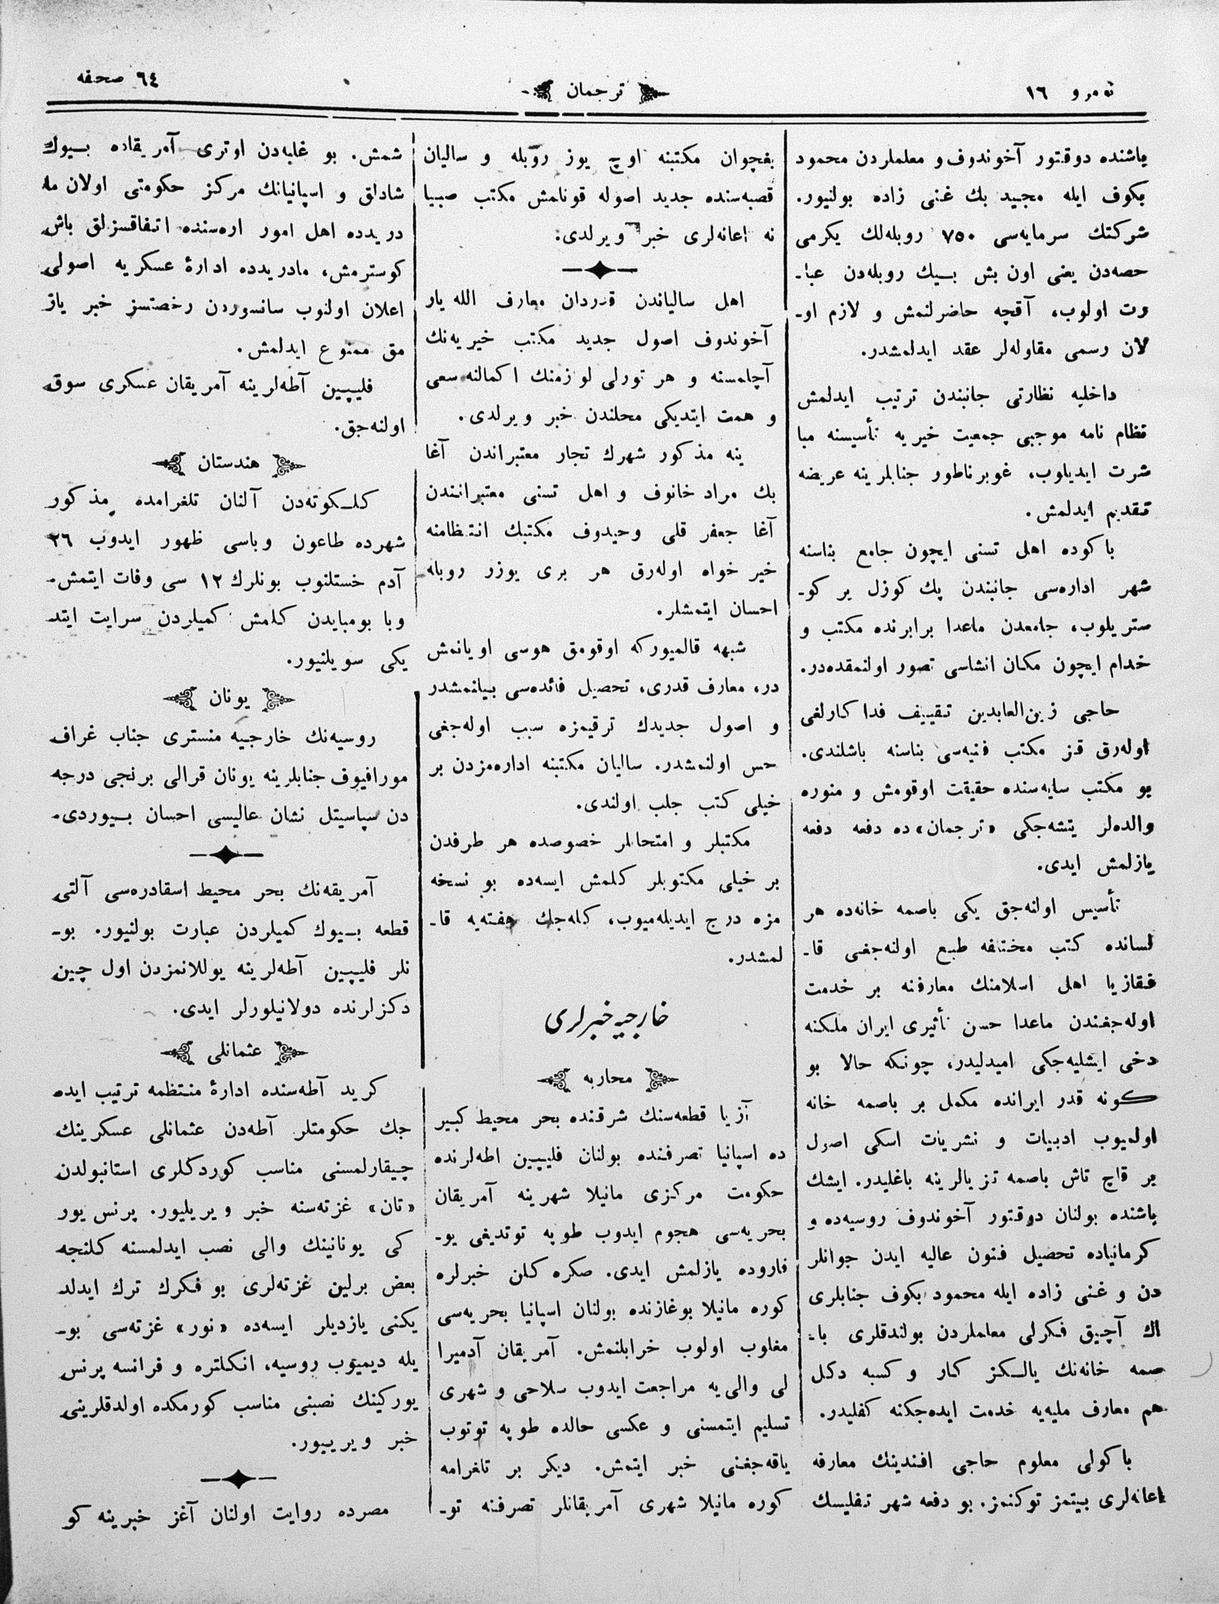 نومرو ١٦
ترجمان
٦٤ صحفه
ياشنده دوقتور آخوندوف و معلملردن محمود
بكوف ايله مجيد بك غنى زاده بولنيور.
شركتك سرمايه‌سى ٧٥٠ روبله‌لك يكرمى
حصه‌دن يعنى اون بش بـيك روبله‌دن عبا-
رت اولوب، آقچه حاضرلنمش و لازم او-
لان رسمى مقاوله‌لر عقد ايدلمشدر.
داخليه نظارتى جانبندن ترتيب ايدلمش
نظام نامه موجبى جمعيت خيريه تأسيسنه مبا
شرت ايديلوب، غوبرناطور جنابلرينه عريضه
تقديم ايدلمش.
باكوده اهل تسنى ايچون جامع بناسنه
شهر اداره‌سى جانبندن پك كوزل ير كو-
ستريلوب، جامعدن ماعدا برابرنده مكتب و
خدام ايچون مكان انشاسى تصور اولنمقده‌در.
حاجى زين‌العابدين تـقييف فداكارلغى
اوله‌رق قز مكتب فنيه‌سى بناسنه باشلندى.
بو مكتب سايه‌سنده حقيقت اوقومش و منوره
والده‌لر يتشه‌جكى «ترجمان» ده دفعه دفعه
يازلمش ايدى.
تأسيس اولنه‌جق يكى باصمه خانه‌ده هر
لسانده كتب مختلفه طبع اولنه‌جغى قا-
فقازيا اهل اسلامنك معارفنه بر خدمت
اوله‌جغندن ماعدا حسن تأثيرى ايران ملكنه
دخى ايشليه‌جكى اميدليدر، چونكه حالا بو
كونه قدر ايرانده مكمل بر باصمه خانه
اولميوب ادبيات و نشريات اسكى اصول
بر قاچ تاش باصمه تزيالرينه باغليدر. ايشك
باشنده بولنان دوقتور آخوندوف روسيه‌ده و
كرمانياده تحصيل فنون عاليه ايدن جوانلر
دن و غنى زاده ايله محمود بكوف جنابلرى
اك آچيق فكرلى معلملردن بولندقلرى با-
صمه خانه‌نك يالـكز كار و كسبه دكل
هم معارف مليه‌يه خدمت ايده‌جكنه كفليدر.
باكولى معلوم حاجى افندينك معارفه
اعانه‌لرى بيتمز توكنمز. بو دفعه شهر تفليسك
بغچوان مكتبنه اوچ يوز روبله و ساليان
قصبه‌سنده جديد اصوله قونلمش مكتب صبيا
نه اعانه‌لرى خبر ويرلدى.
اهل ساليانـدن قدردان معارف الله يار
آخوندوف اصول جديد مكتب خيريه‌نك
آچلمسنه و هر تورلى لوازمنك اكمالنه سعى
و همت ايتديكى محلندن خبر ويرلدى.
ينه مذكور شهرك تجار معتبراندن آغا
بك مراد خانوف و اهل تسنى معتبرانندن
آغا جعفر قلى وحيدوف مكتبك انتظامنه
خير خواه اوله‌رق هر برى يوزر روبله
احسان ايتمشلر.
شبهه قالميوركه اوقومق هوسى اويانمش
در، معارف قدرى، تحصيل فائده‌سى بيلنمشدر
و اصول جديدك ترقيمزه سبب اوله‌جغى
حس اولنمشدر. ساليان مكتبنه اداره‌مزدن بر
خيلى كتب جلب اولندى.
مكتبلر و امتحانلر خصوصده هر طرفدن
بر خيلى مكتوبلر كلمش ايسه‌ده بو نسخه
مزه درج ايديله‌ميوب، كله‌جك هفته‌يه قا-
لمشدر.
خارجيه خبرلرى
محاربه
آزيا قطعه‌سنك شرقنده بحر محيط كبير
ده اسپانيا تصرفنده بولنان فليپين اطه‌لرنده
حكومت مركزى مانيلا شهرينه آمريقان
بحريه‌سى هجوم ايدوب طوپه توتديغى يو-
قاروده يازلمش ايدى. صكره كلن خبرلره
كوره مانيلا بوغازنده بولنان اسپانيا بحريه‌سى
مغلوب اولوب خرابلنمش. آمريقان آدميرا
لى والى‌يه مراجعت ايدوب سلاحى و شهرى
تسليم ايتمسنى و عكسى حالده طوپه توتوب
ياقه‌جغنى خبر ايتمش. ديكر بر تلغرامه
كوره مانيلا شهرى آمريقانلر تصرفنه تو-
شمش. بو غلبه‌دن اوترى آمريقاده بـيوك
شادلق و اسپانيانك مركز حكومتى اولان ما
دريدده اهل امور اره‌سنده اتفاقسزلق باش
كوسترمش، مادريدده ادارۀ عسكريه اصولى
اعلان اولنوب سانسوردن رخصتسز خبر ياز
مق ممنوع ايدلمش.
فليپين آطه‌لرينه آمريقان عسكرى سوق
اولنه‌جق.
هندستان
كلـكوته‌دن آلنان تلغرامده مذكور
شهرده طاعون وباسى ظهور ايدوب ٢٦
آدم خستلنوب بونلرك ١٢ سى وفات ايتمش-
وبا بومبايدن كلمش كميلردن سرايت ايتد
يكى سويلنيور.
يونان
روسيه‌نك خارجيه منسترى جناب غراف
مورافيوف جنابلرينه يونان قرالى برنجى درجه
دن سپاسيتل نشان عاليسى احسان بـيوردى.
آمريقه‌نك بحر محيط اسقادره‌سى آلتى
قطعه بـيوك كميلردن عبارت بولنيور. بو-
نلر فليپين آطه‌لرينه يوللانمزدن اول چين
دكزلرنده دولانيلورلر ايدى.
عثمانلى
كريد آطه‌سنده ادارۀ منتظمه ترتيب ايده
جك حكومتلر آطه‌دن عثمانلى عسكرينك
چيقارلمسنى مناسب كوردكلرى استانبولدن
«تان» غزته‌سنه خبر ويريليور. پرنس يور
كى يونانينك والى نصب ايدلمسنه كلنجه
بعض برلين غزته‌لرى بو فكرك ترك ايدلد
يكنى يازديلر ايسه‌ده «نور» غزته‌سى بو-
يله ديميوب روسيه، انكلتره و فرانسه پرنس
يوركينك نصبنى مناسب كورمكده اولدقلرينى
خبر ويرييور.
مصرده روايت اولنان آغز خبرينه كو